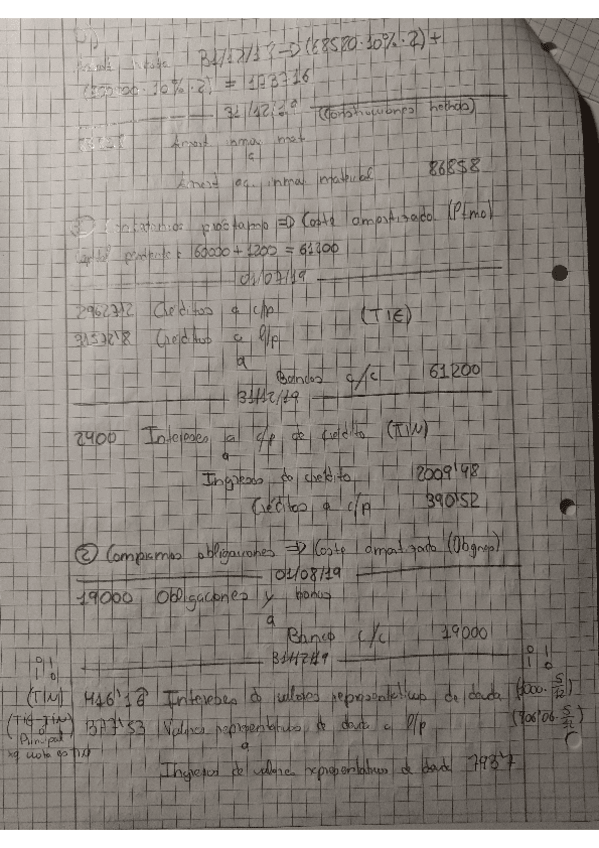 31/12/1 => (68520 · 10% · 2) +
· 10% · 2) = 103716
31/12/ (Construcciones hechas)
Amort inmov mat
a
Amort ac. inmov material 86858
préstamo => Coste amortizado (Ptmo)
60000 + 1200 = 61200
01/07/19
Créditos a c/p (TIE)
Créditos a l/p
a
Bancos c/c 61200
31/12/19
2400 Intereses a c/p de crédito (TIN)
a
Ingresos de crédito 2009'48
Créditos a c/p 390'52
② Compramos obligaciones => Coste amortizado (Obgnes)
01/08/19
19000 Obligaciones y bonos
a
Banco c/c 19000
31/12/19
(TIN) 416'16 Intereses de valores representativos de deuda (1000 · 5/12)
(TIE-TIN) 377'53 Valores representativos de deuda a l/p (906'06 · 5/12)
Principal
a
Ingresos de valores representativos de deuda 793'7